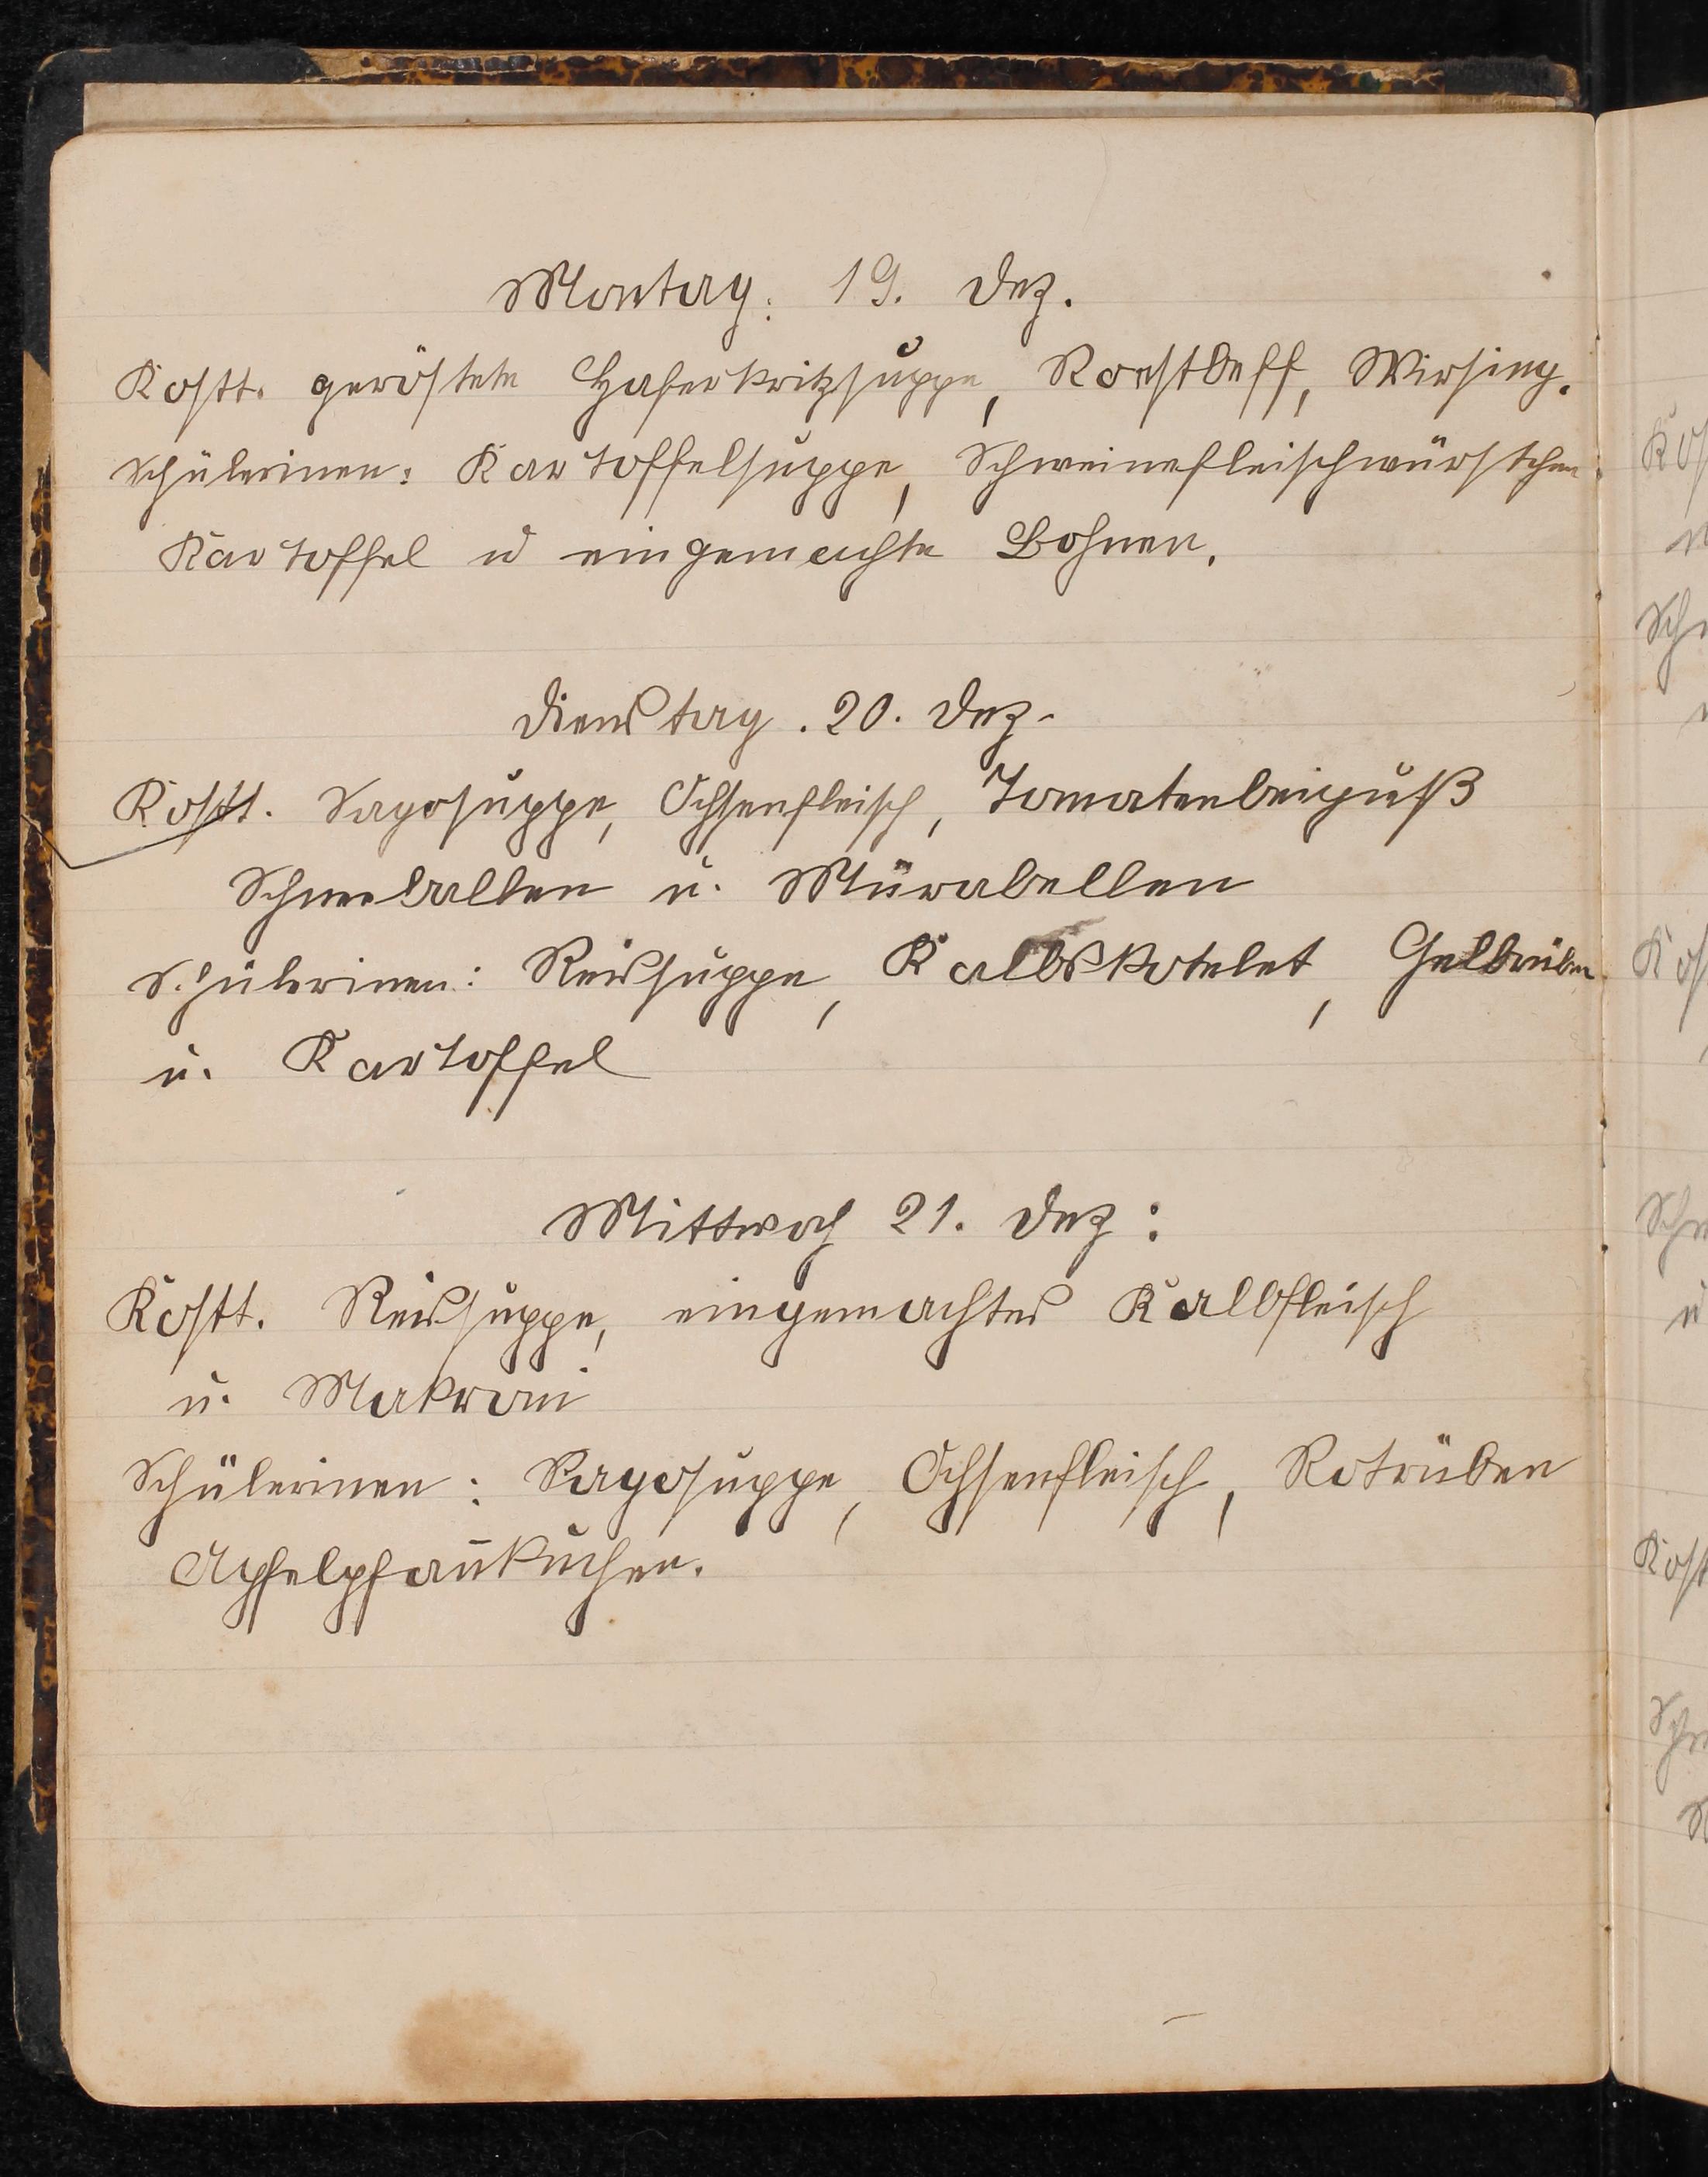 Montag. 19. Dez.
Kostt. geröstete Haferkritzsuppe, Roastbeff, Wirsing.
Schülerinen: Kartoffelsuppe, Schweinefleischwürstchen
Kartoffel u eingemachte Bohnen.
Dienstag. 20. Dez.
Kostt. Sagosuppe, Ochsenfleisch, Tomatenbeiguß
Schneeballen u. Mürabellen
Schülerinen: Reissuppe, Kalbskotelet, Gelbrüben
u. Kartoffel
Mittwoch 21. Dez:
Kostt. Reissuppe, eingemachtes Kalbfleisch
u. Makroni
Schülerinen: Sagosuppe, Ochsenfleisch, Rotrüben
Apfelpfannkuchen.